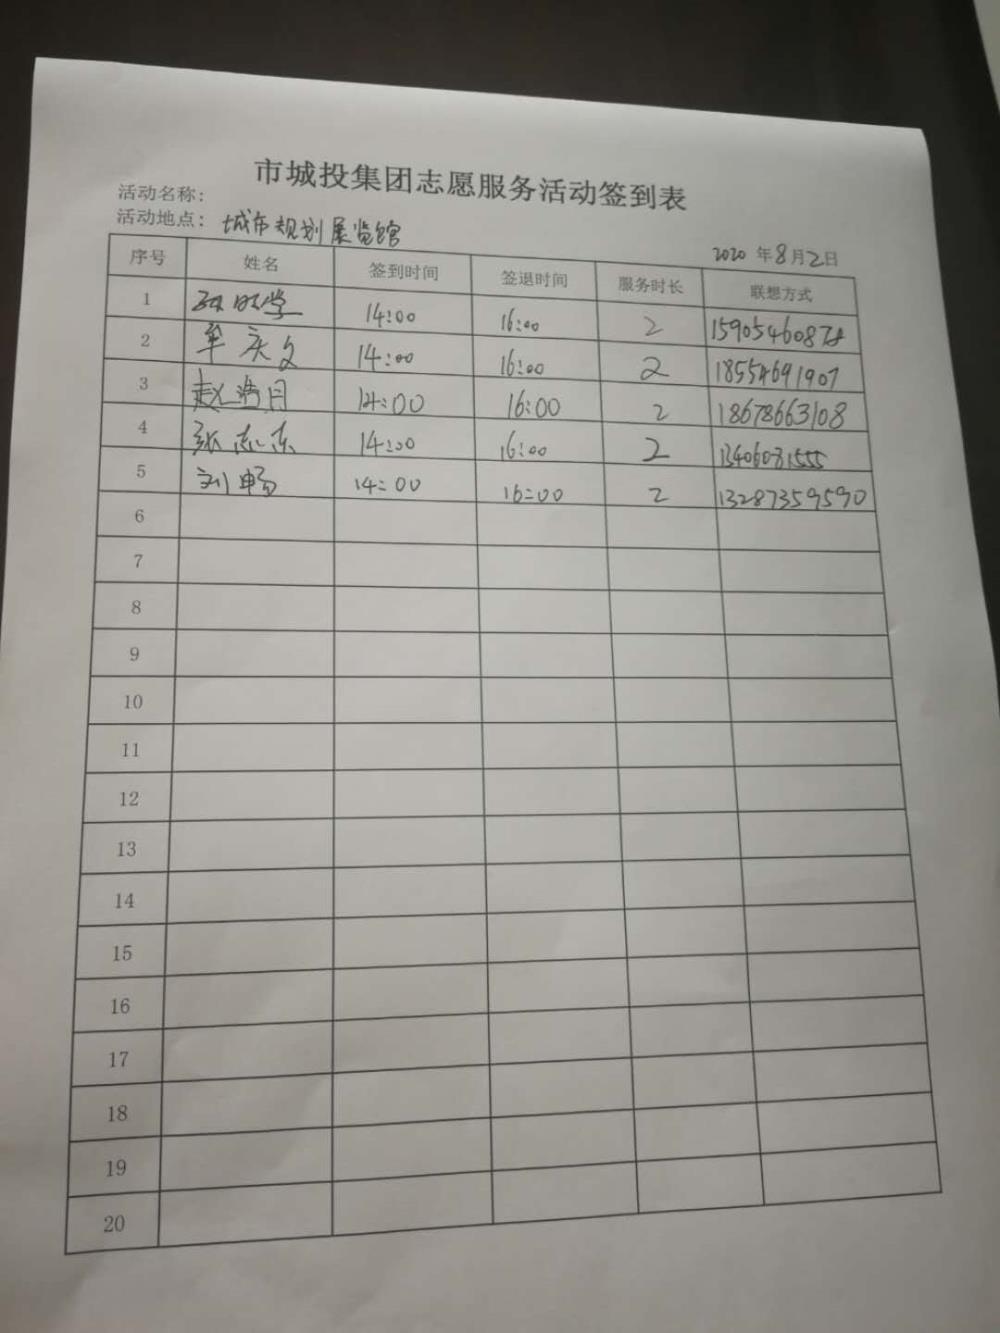 市城投集团志愿服务活动签到表
活动名称：
活动地点： 城市规划展览馆
2020 年 8 月 2 日
序号 姓名 签到时间 签退时间 服务时长 联想方式
1 14:00 16:00 2 159054608
2 14:00 16:00 2 18554691907
3 赵 月 14:00 16:00 2 18678663108
4 张志东 14:00 16:00 2 13406081555
5 刘畅 14:00 16:00 2 13287359590
6
7
8
9
10
11
12
13
14
15
16
17
18
19
20